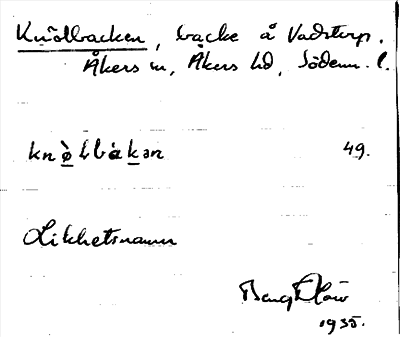 Knölbacken, backe å Vadstorp.
Åkers sn, Åkers hd, Söderm. l.
knø̀lbàkan 49.
Likhetsnamn
1935.